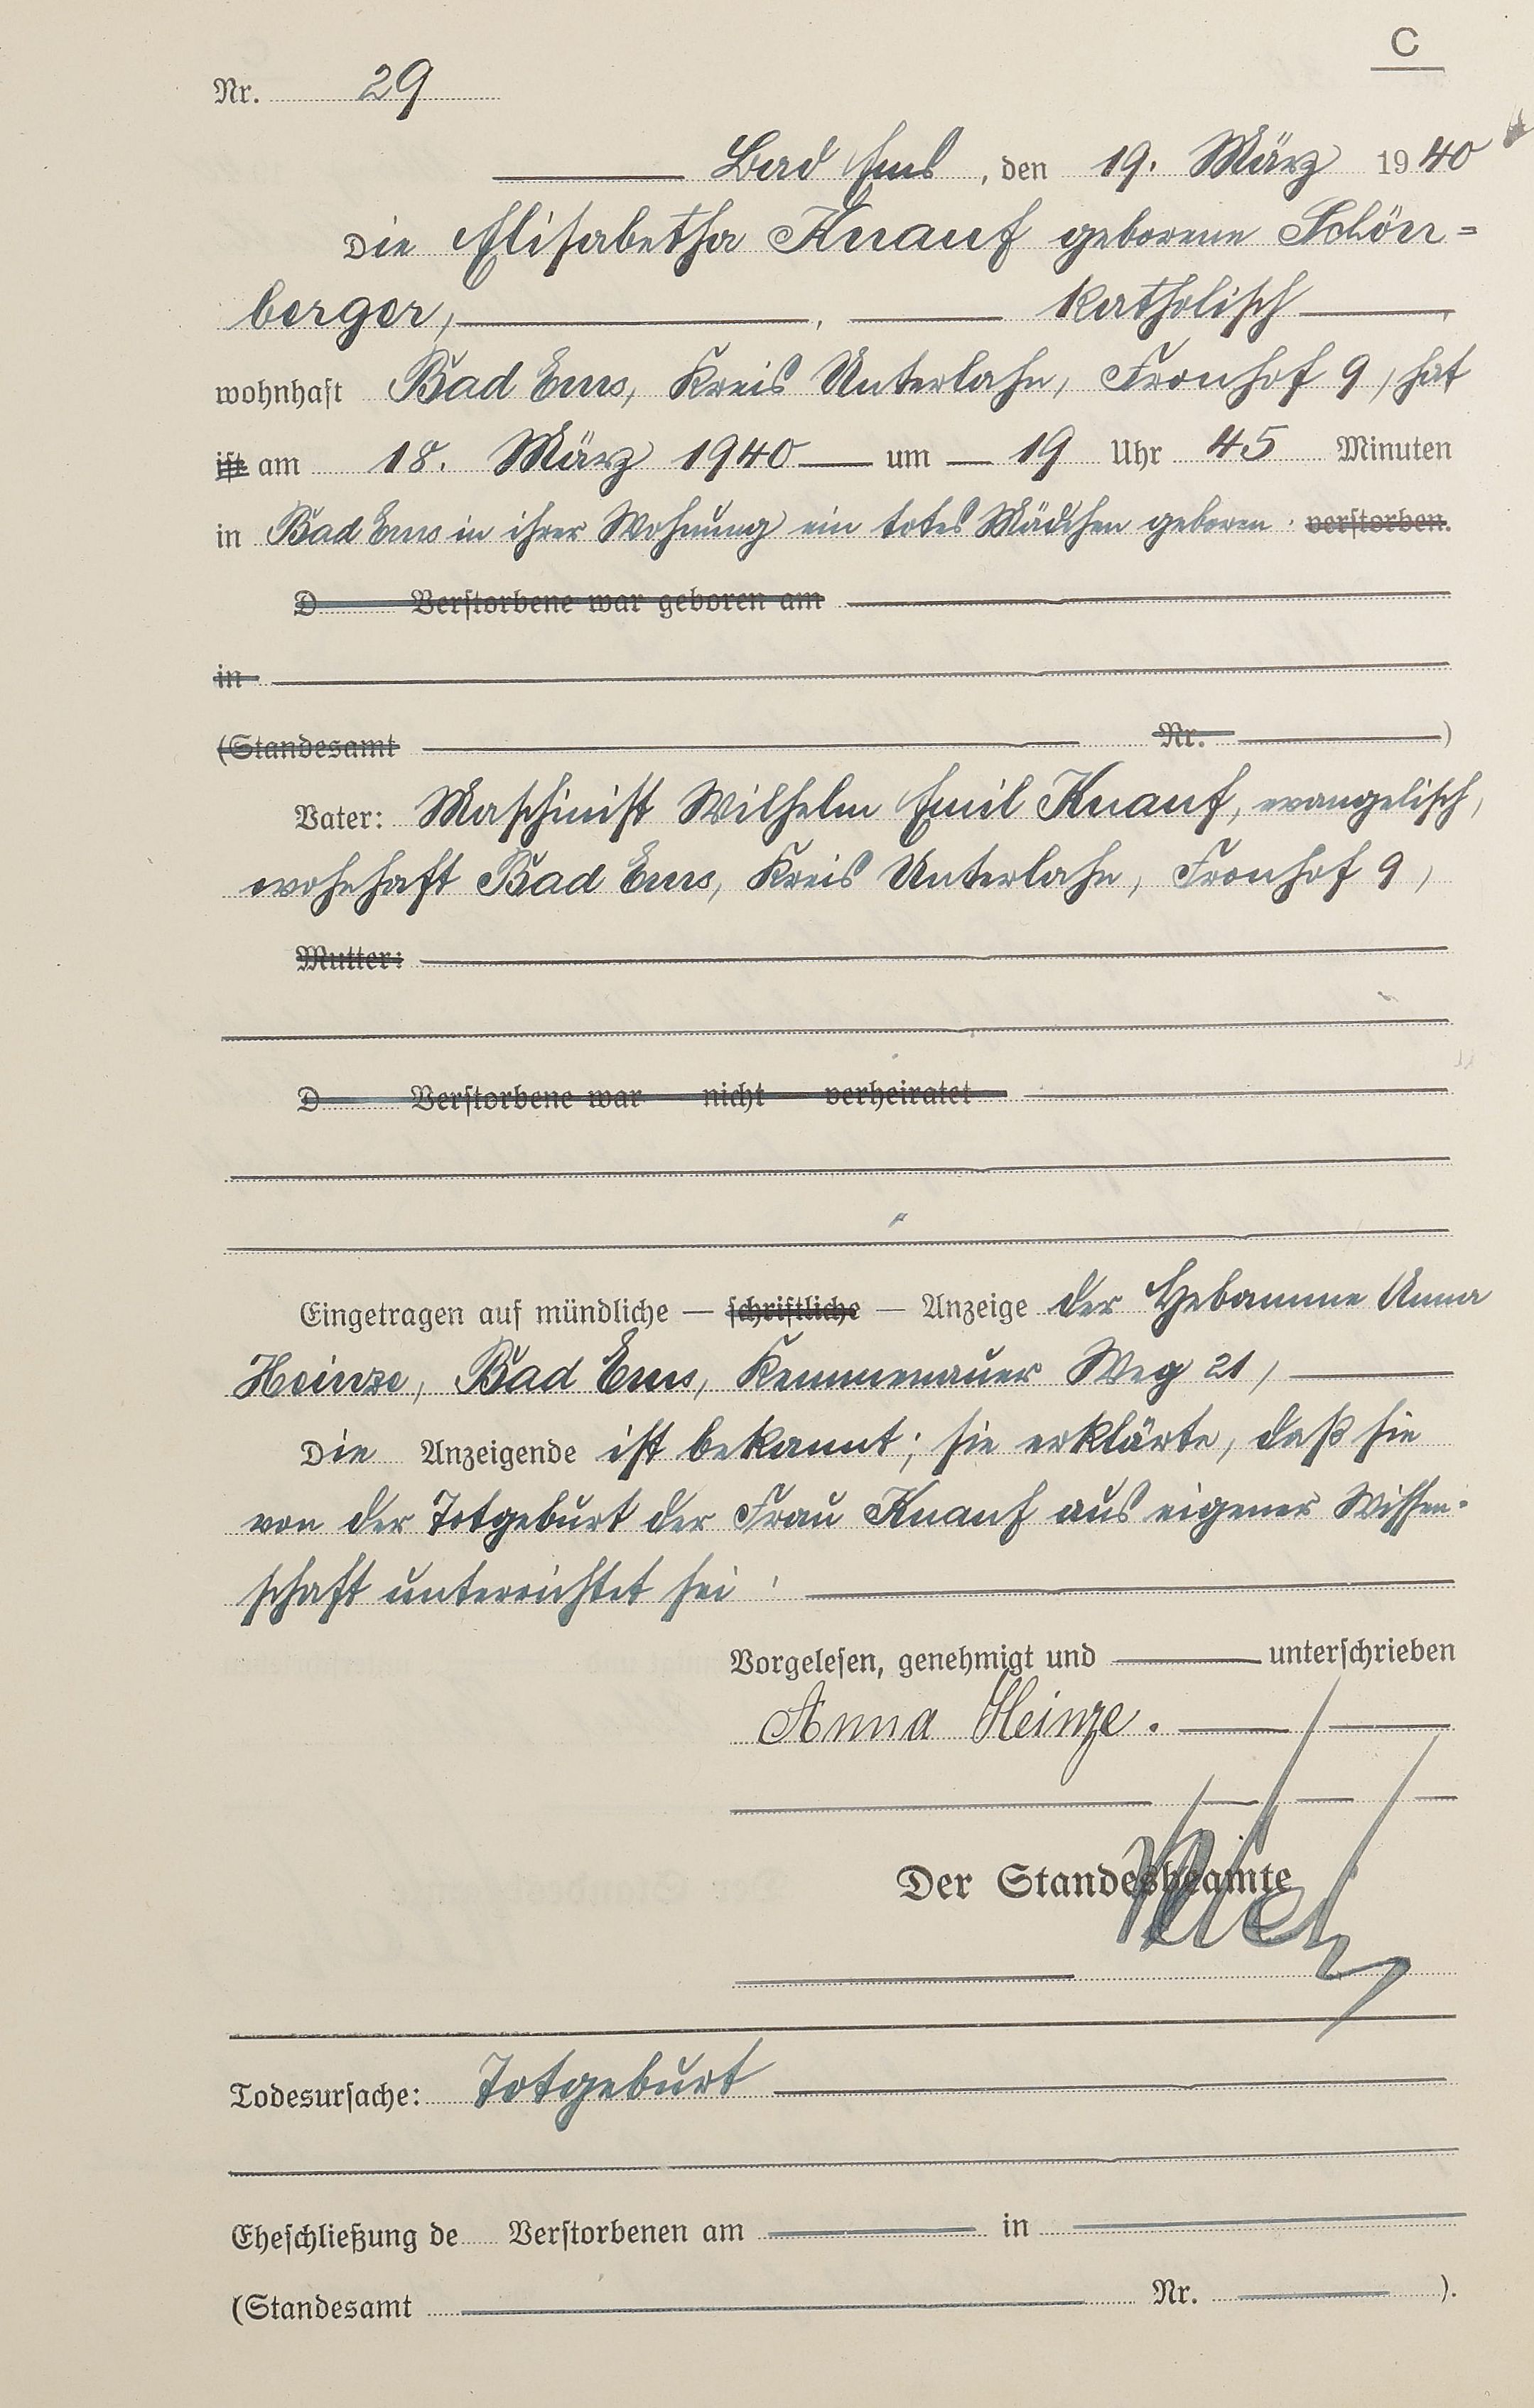 C
Nr. 29
Bad Ems, den 19. März 1940
Die Elisabetha Knauf geborene Schön=
berger, katholisch,
wohnhaft Bad Ems, Kreis Unterlahn, Fronhof 9, hat
ist am 18. März 1940 um 19 Uhr 45 Minuten
in Bad Ems in ihrer Wohnung ein totes Mädchen geboren. verstorben.
D Verstorbene war geboren am
in
(Standesamt Nr. )
Vater: Maschinist Wilhelm Emil Knauf, evangelisch,
wohnhaft Bad Ems, Kreis Unterlahn, Fronhof 9,
Mutter:
D Verstorbene war nicht verheiratet
Eingetragen auf mündliche — schriftliche — Anzeige der Hebamme Anna
Heinze, Bad Ems, Kemmenauer Weg 21,
Die Anzeigende ist bekannt; sie erklärte, daß sie
von der Totgeburt der Frau Knauf aus eigener Wissen-
schaft unterrichtet sei.
Vorgelesen, genehmigt und unterschrieben
Anna Heinze.
Der Standesbeamte
Todesursache: Totgeburt
Eheschließung de Verstorbenen am in
(Standesamt Nr. ).